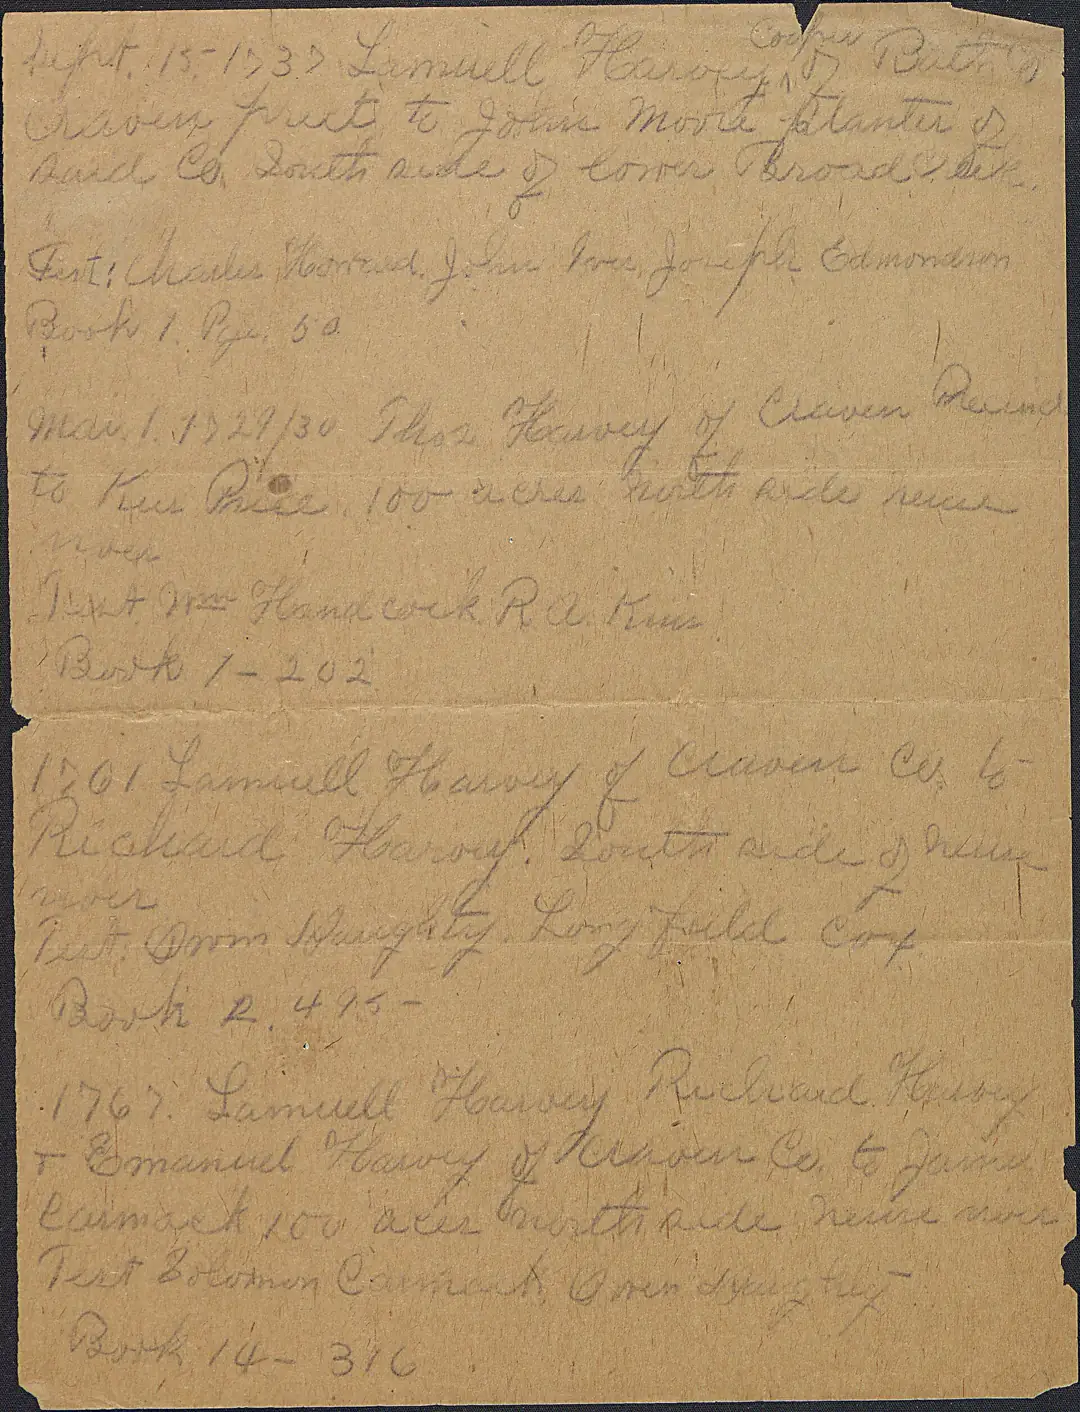 Sept. 15- 1737 Lamuell Harvey, Cooper of Bath Co
Craven prect to John Moore planter of
said Co. South side of lower Broad Creek.
Test: Charles Howard. John Ives, Joseph Edmondson
Book 1. Pge. 50
Mar. 1. 1729/30 Thos Harvey of Craven Precinct
to Price 100 acres North side neuse
river
Test. Wm Handcock R. A.
Book 1 - 202
1761 Lamuell Harvey of Craven Co. to
Richard Harvey. South side of neuse
river
Test. Owen Daughty. Longfield Cox
Book 2. 495-
1767. Lamuell Harvey Richard Harvey
+ Emanuel Harvey of Craven Co. to James
Carmack 100 acres north side neuse river
Test Solomon Carmack, Owen Daughty
Book 14 - 316